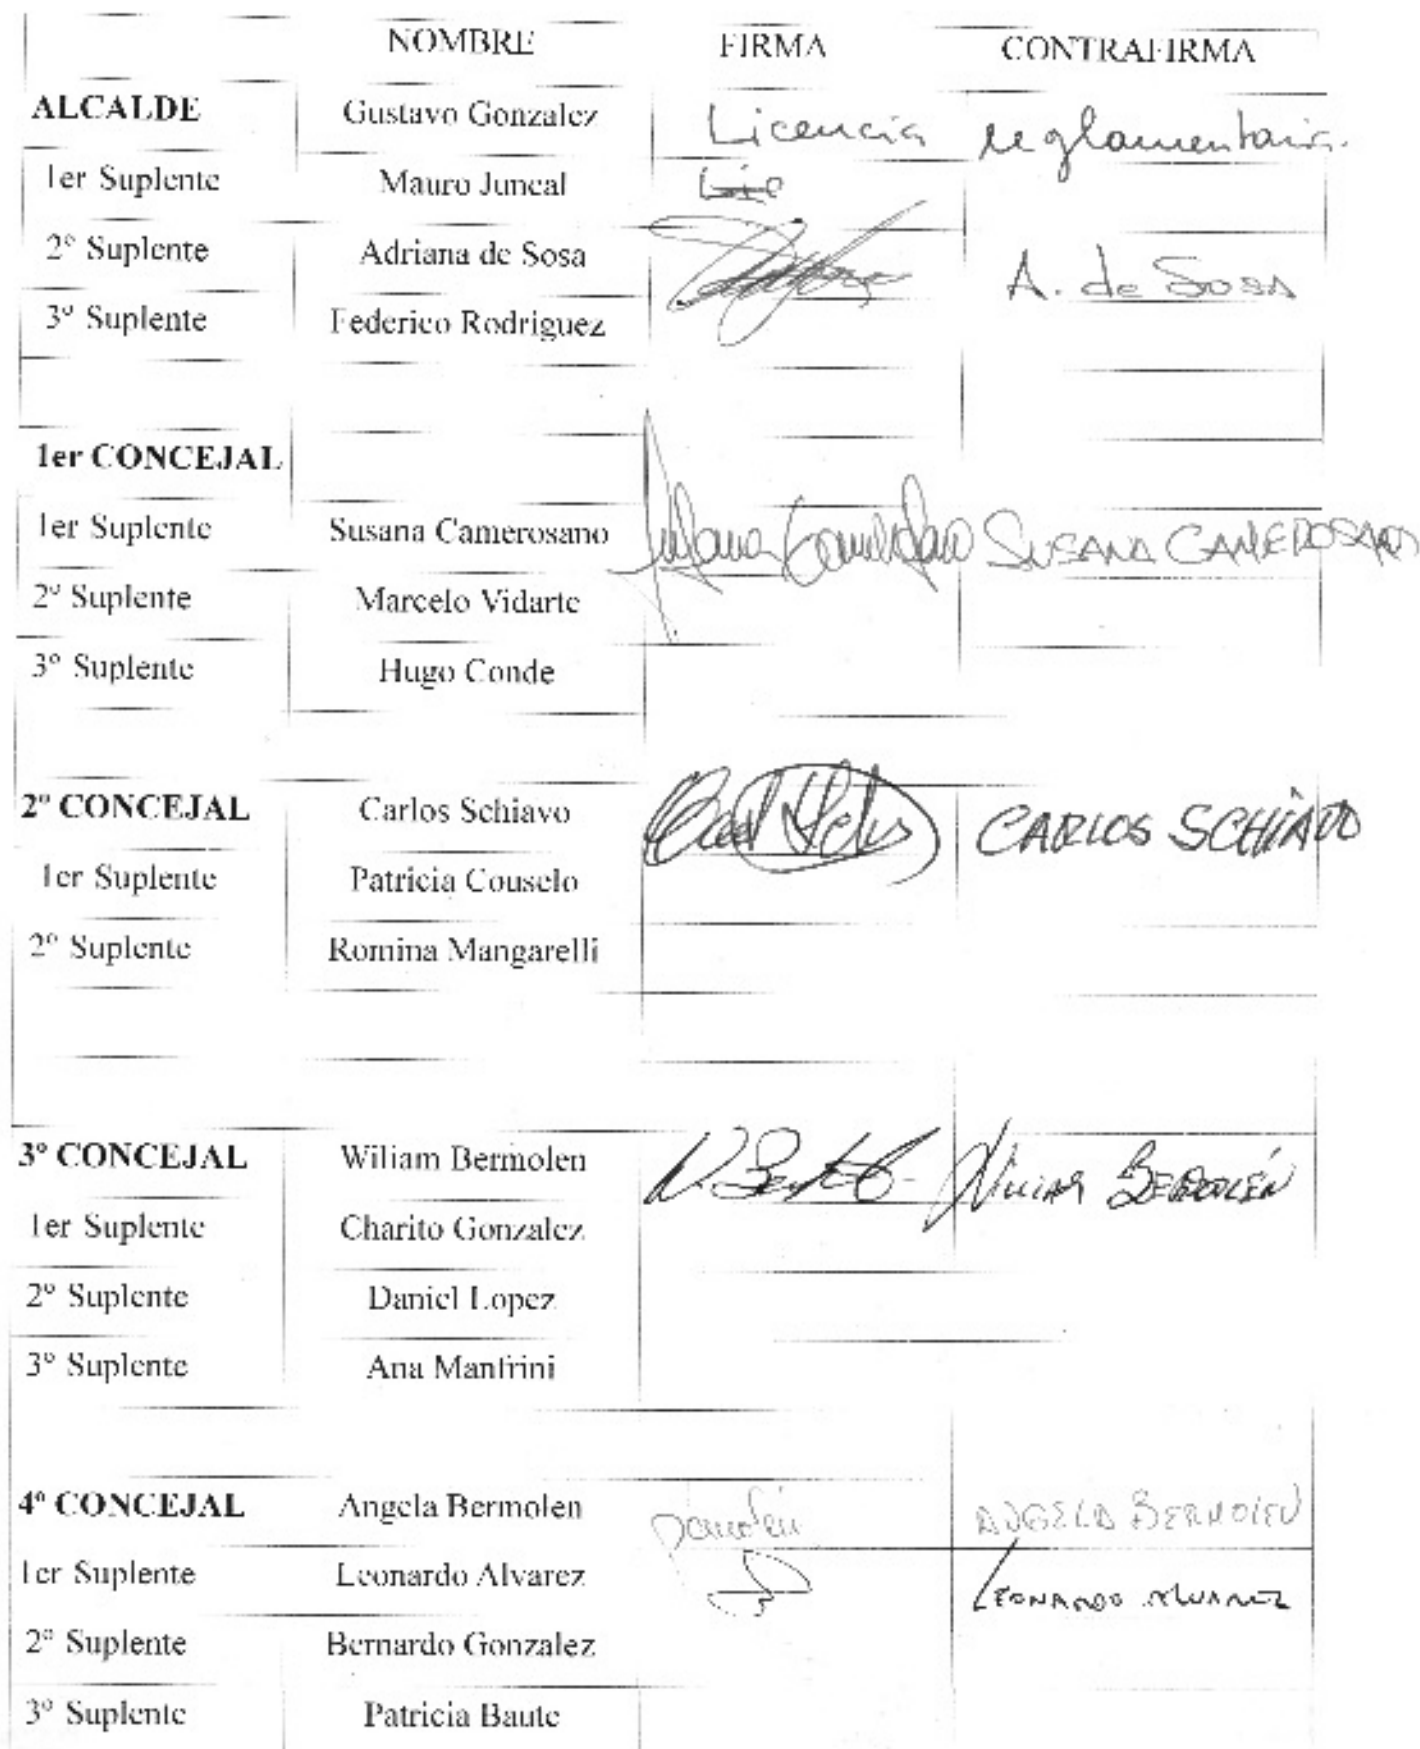 NOMBRE FIRMA CONTRAFIRMA
ALCALDE Gustavo Gonzalez Licencia reglamentaria.
1er Suplente Mauro Juncal Lic
2º Suplente Adriana de Sosa A. de Sosa
3º Suplente Federico Rodriguez
1er CONCEJAL
1er Suplente Susana Camerosano SUSANA CAMEROSANO
2º Suplente Marcelo Vidarte
3º Suplente Hugo Conde
2º CONCEJAL Carlos Schiavo CARLOS SCHIAVO
1er Suplente Patricia Couselo
2º Suplente Romina Mangarelli
3º CONCEJAL Wiliam Bermolen W. WILIAM BERMOLÉN
1er Suplente Charito Gonzalez
2º Suplente Daniel Lopez
3º Suplente Ana Manfrini
4º CONCEJAL Angela Bermolen ANGELA BERMOLEN
1er Suplente Leonardo Alvarez LEONARDO ALVAREZ
2º Suplente Bernardo Gonzalez
3º Suplente Patricia Baute